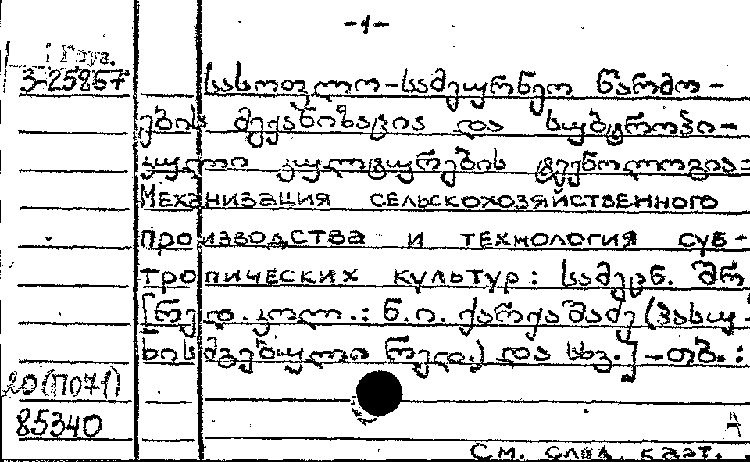 -1-
Груз.
3-25857
სასოფლო-სამეურნეო წარმო-
ების მექანიზაცია და სუბტროპი-
კული კულტურების ტექნოლოგია=
Механизация сельскохозяйственного
производства и технология суб-
тропических культур: სამეცნ. შრ.
[რედ. კოლ.: ნ. ი. ქარქაშაძე (პასუ-
ხისმგებელი რედ.) და სხვ.] -თბ.:
20(П071)
85340
А
См. след. карт.